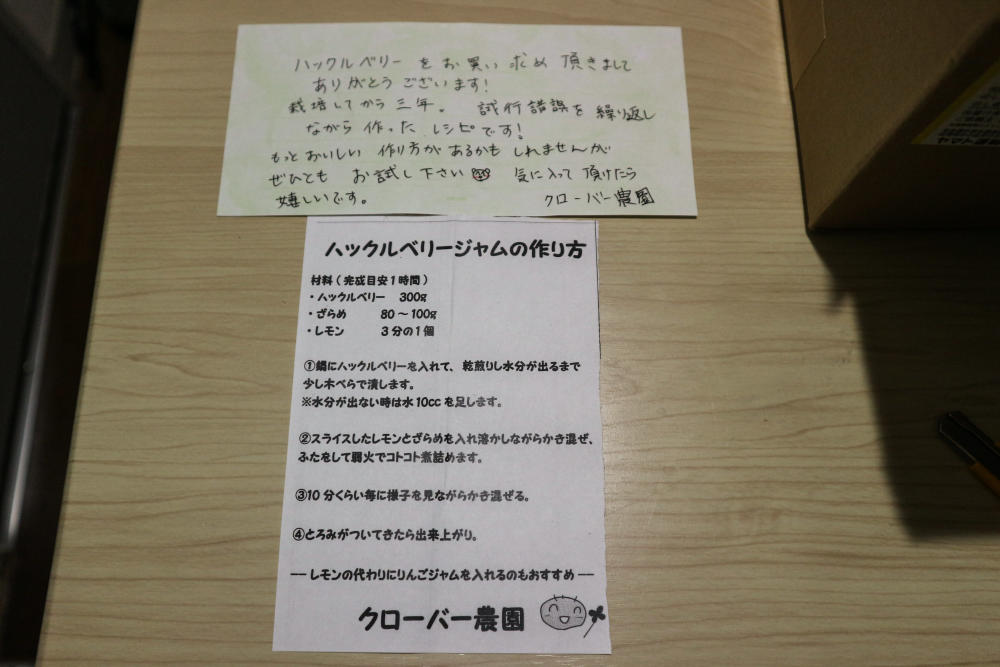 ハックルベリーをお買い求め頂きまして
ありがとうございます!
栽培してから三年。 試行錯誤を繰り返し
ながら作ったレシピです!
もっとおいしい作り方があるかもしれませんが
ぜひともお試し下さい 気に入って頂けたら
嬉しいです。 クローバー農園
ハックルベリージャムの作り方
材料(完成目安1時間)
・ハックルベリー 300g
・ざらめ 80〜100g
・レモン 3分の1個
①鍋にハックルベリーを入れて、乾煎りし水分が出るまで
少し木べらで潰します。
※水分が出ない時は水10ccを足します。
②スライスしたレモンとざらめを入れ溶かしながらかき混ぜ、
ふたをして弱火でコトコト煮詰めます。
③10分くらい毎に様子を見ながらかき混ぜる。
④とろみがついてきたら出来上がり。
―レモンの代わりにりんごジャムを入れるのもおすすめ―
クローバー農園